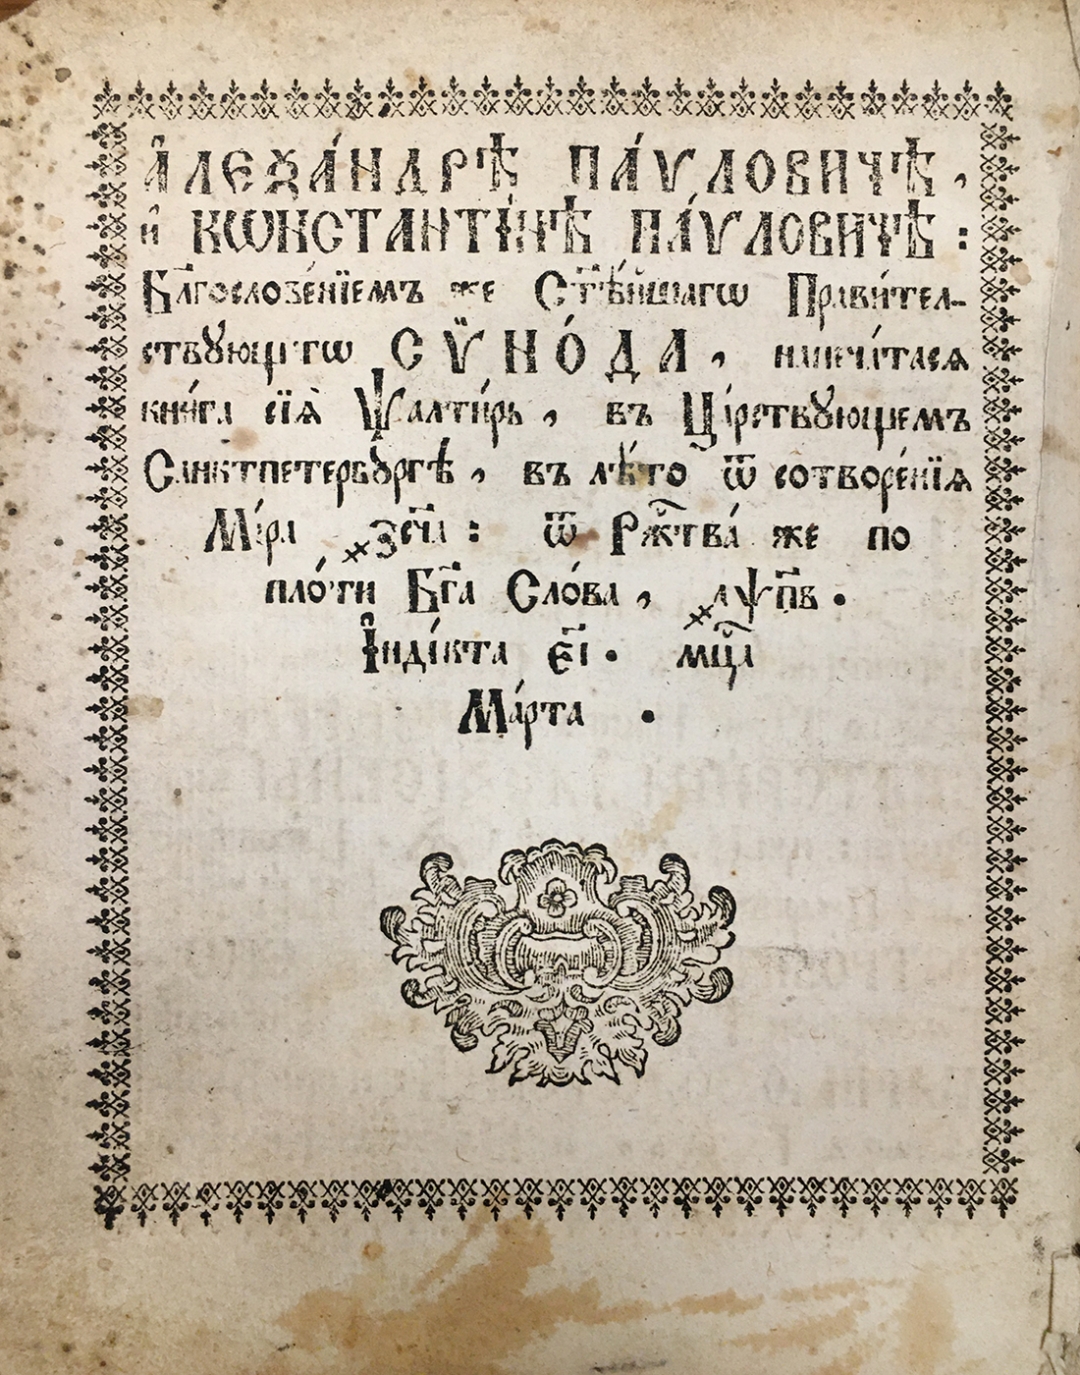 А҆леѯа́ндрѣ Па́ѵловичѣ,
и҆ Кѡнстантı́нѣ Па́ѵловичѣ:
Бл҃гослове́нїемъ же Ст҃ѣ́йшагѡ Прави́тел-
ствꙋющагѡ Сѷно́да, напеча́тася
кни́га сїѧ̀ Ѱалти́рь, въ Ца́рствꙋющемъ
Санктпетербꙋ́ргѣ, въ лѣ́то ѿ сотворе́нїя
Мı́ра ҂зсч҃: ѿ Рж҃тва́ же по
пло́ти Бг҃а Сло́ва, ҂аѱп҃в.
І҆ндı́кта є҃і. мц҃а
Ма́рта .